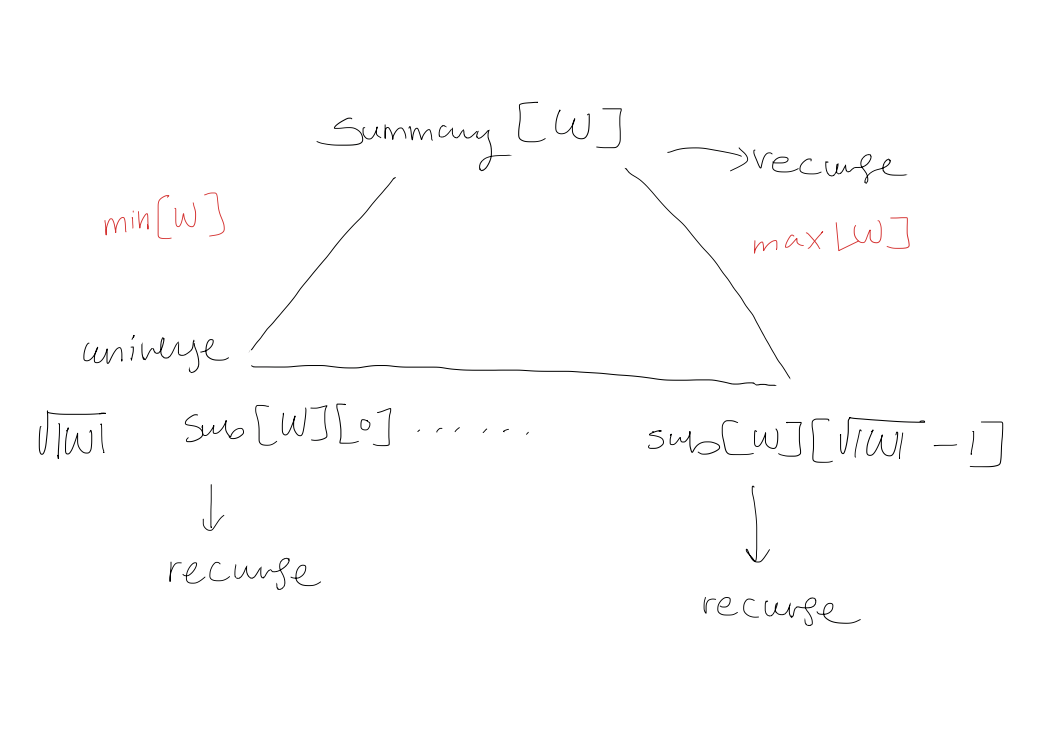 summary [W]
→ recurse
min[W]
max[W]
universe
√|W| sub[W][0] ...... sub[W][√|W| - 1]
↓ ↓
recurse
recurse